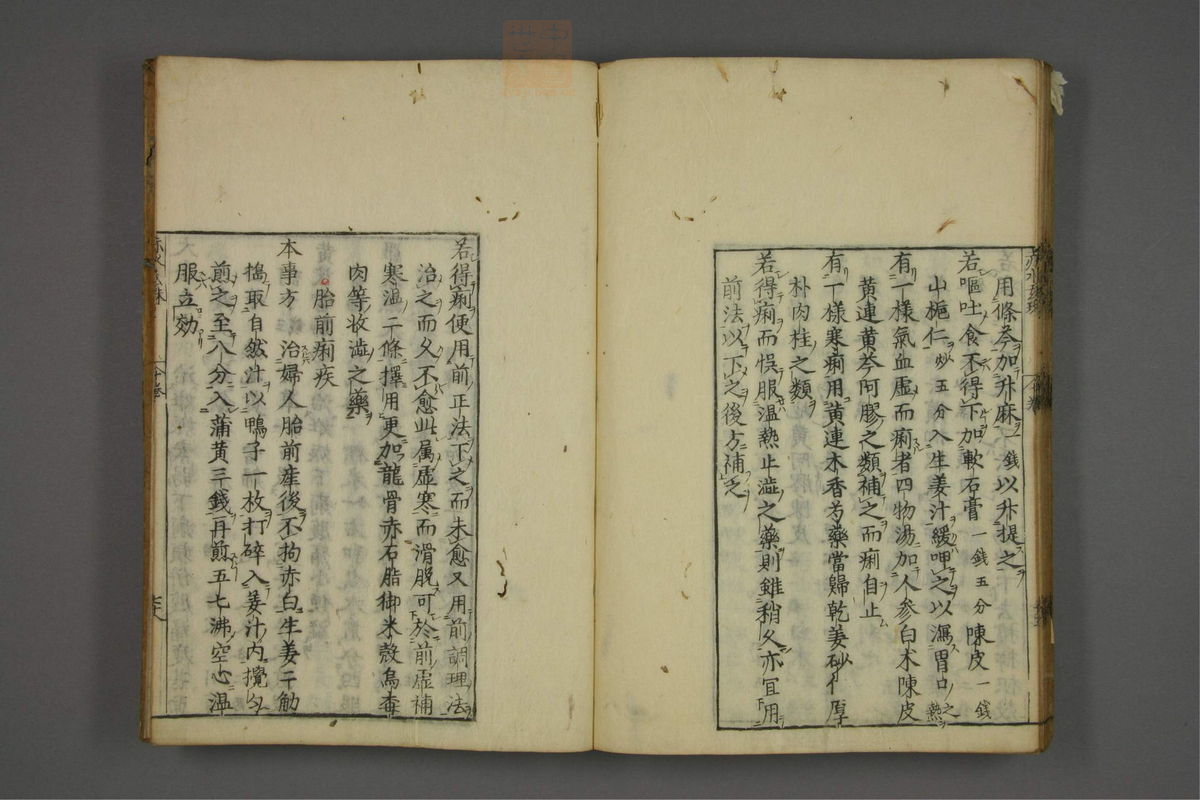 用條芩加升麻一錢以升提之
若嘔吐食不得下加軟石膏一錢五分陳皮一錢
山梔仁炒五分入生姜汁緩呷之以瀉胃口之熱
有一樣氣血虛而痢者四物湯加人参白朮陳皮
黄連黄芩阿膠之類補之而痢自止
有一樣寒痢用黄連木香芍藥當歸乾姜砂仁厚
朴肉桂之類
若得痢而悞服温熱止澁之藥則雖稍久亦宜用
前法以下之後方補之
若得痢便用前正法下之而未愈又用前調理法
治之而久不愈此属虛寒而滑脱可於前虛補
寒温二條擇用更加龍骨赤石脂御米殻烏梅
肉等妝澁之藥
胎前痢疾
本事方 治婦人胎前産後不拘赤白生姜二觔
搗取自然汁以鴨子一枚打碎入姜汁内攪匀
煎之至八分入蒲黄三錢再煎五七沸空心温
服立効